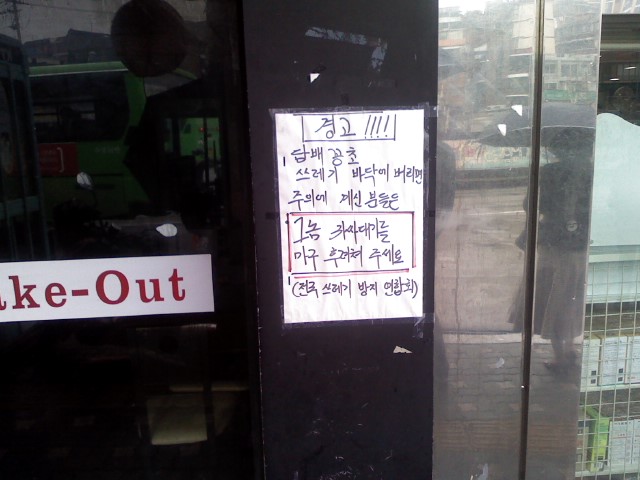 경고 !!!!
담배 꽁초
쓰레기 바닥에 버리면
주의에 계신 분들은
그놈 귀싸대기를
마구 후려쳐 주세요
(전국 쓰레기 방지 연합회)
ake-Out